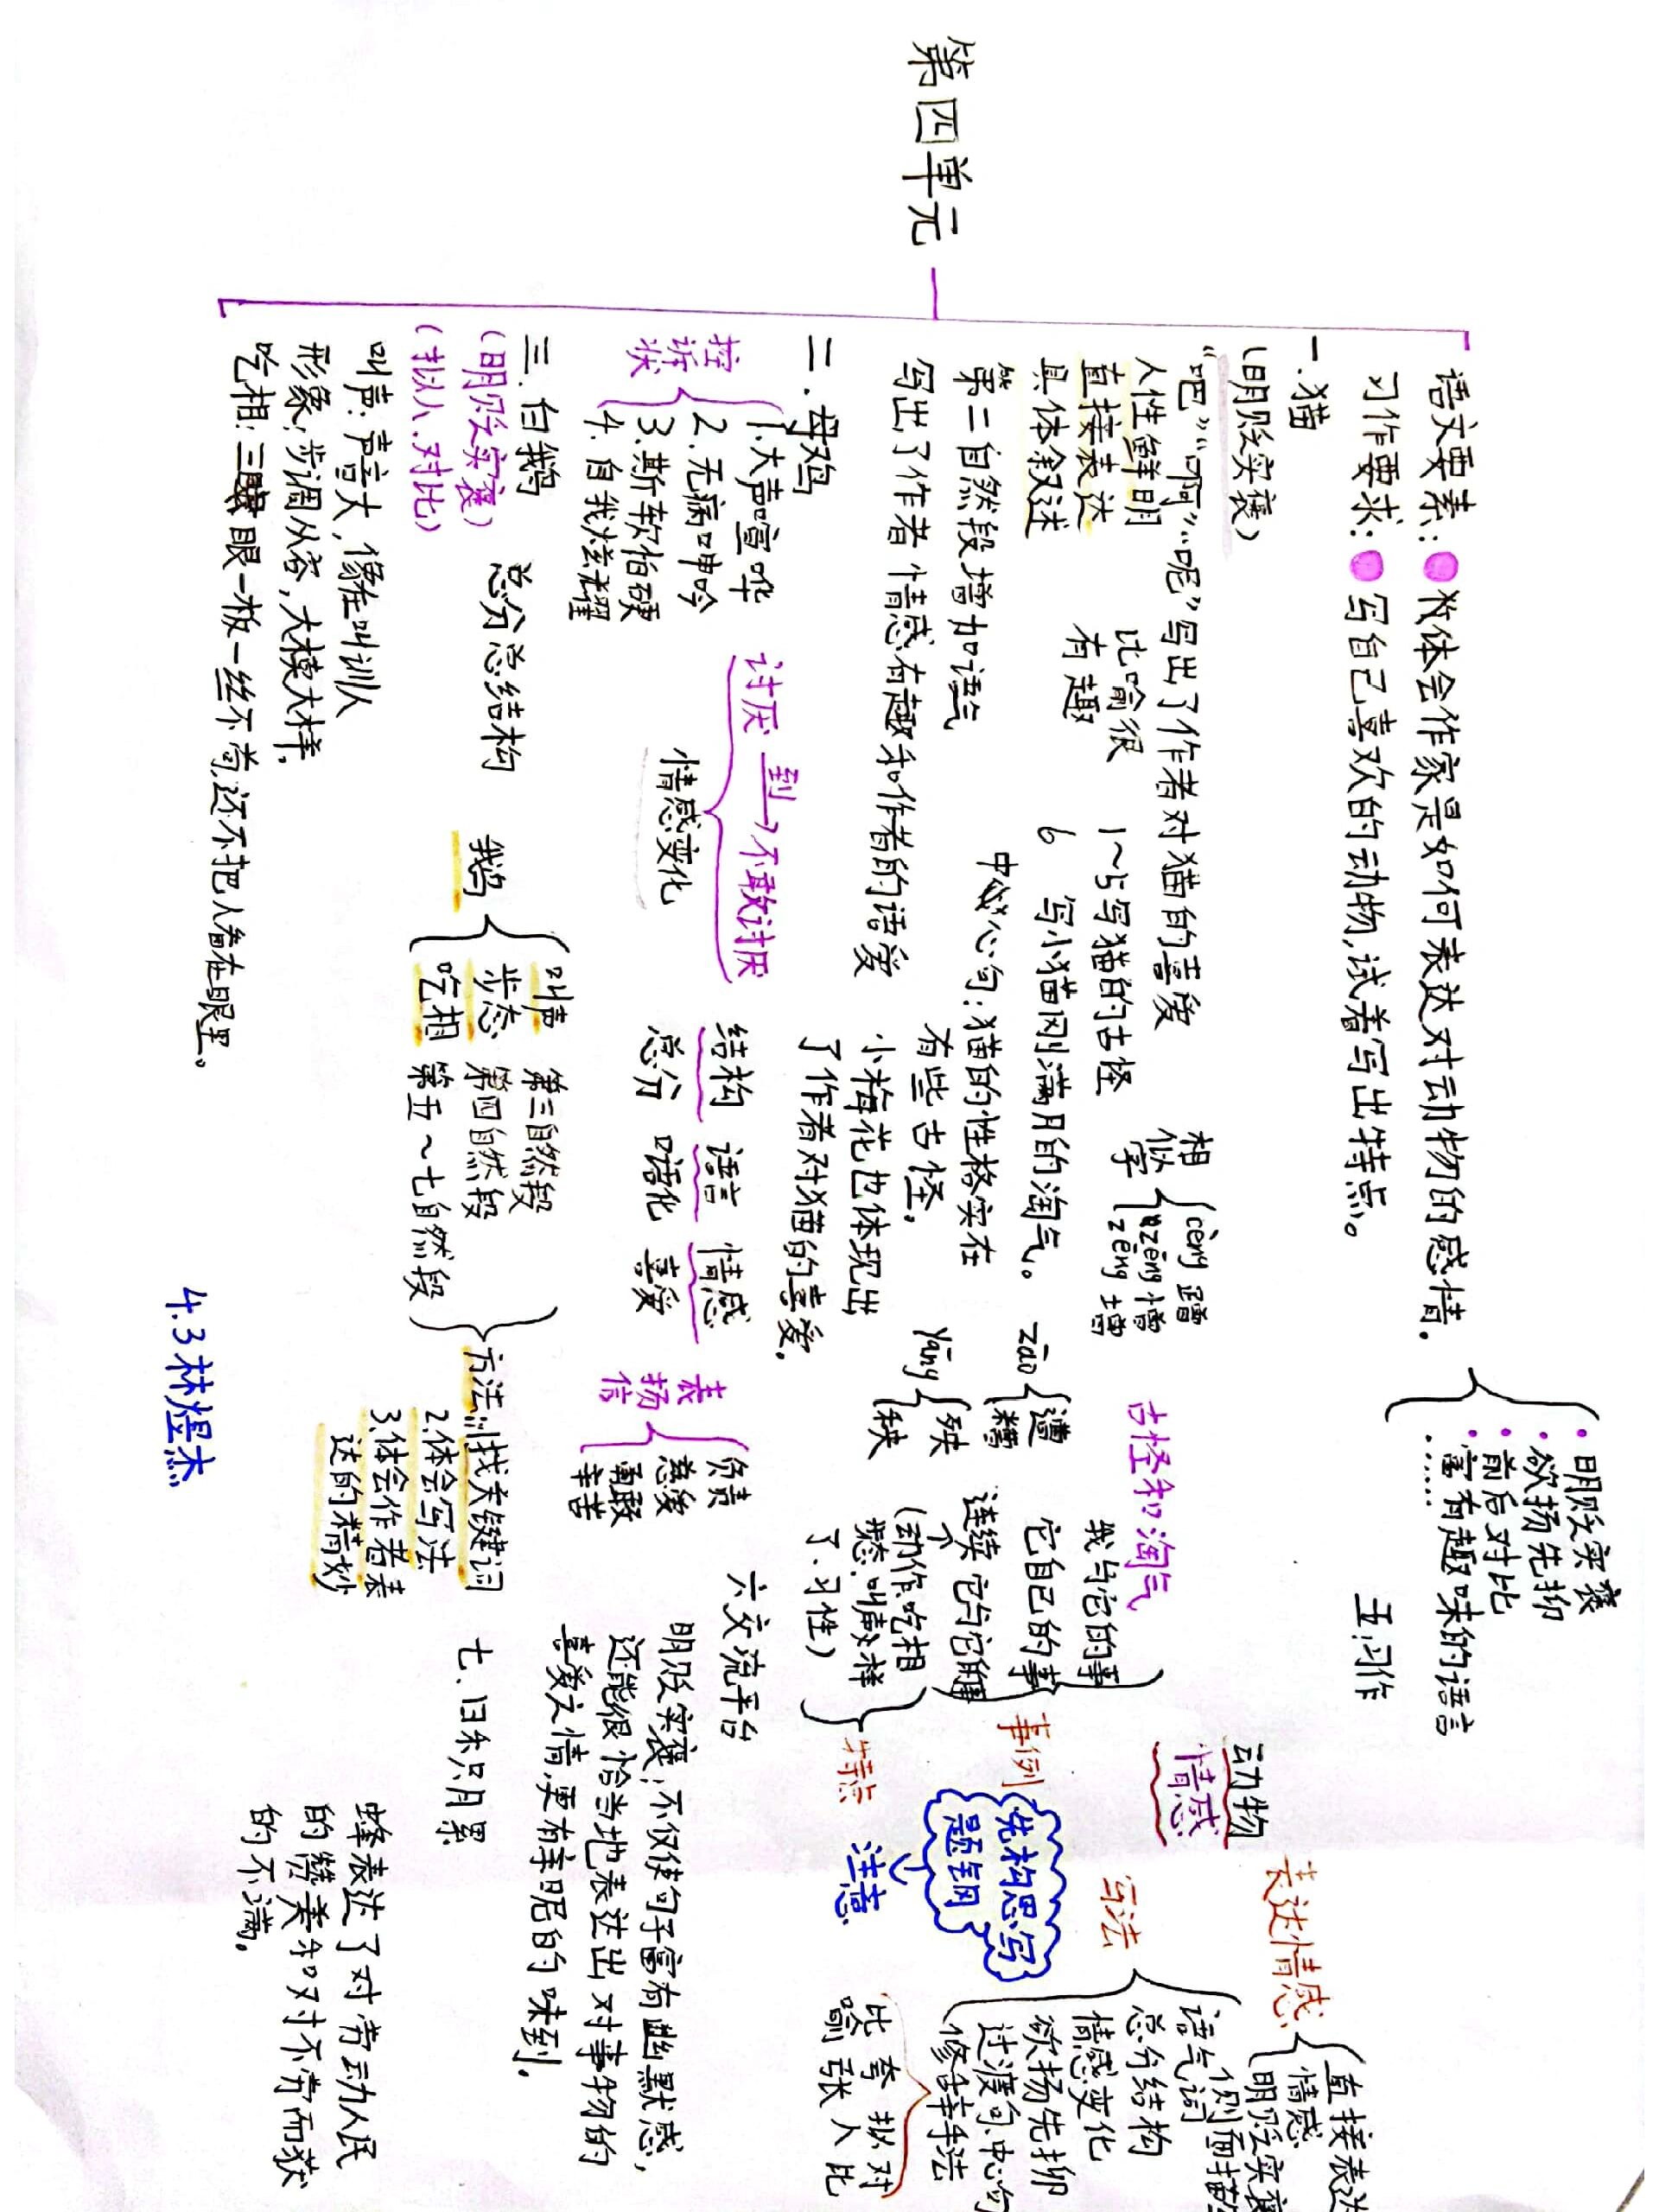 第四单元
语文要素：体会作家是如何表达对动物的感情。
习作要求：写自己喜欢的动物，试着写出特点。
明贬实褒
欲扬先抑
前后对比
富有趣味的语言
……
一.猫
（明贬实褒）
“吧”“啊”“呢”写出了作者对猫的喜爱
人性鲜明
直接表达
具体叙述
比喻很
有趣
1～5写猫的古怪
6 写小猫刚满月的淘气。
第二自然段增加语气
写出了作者情感有趣和作者的语爱
中心句：猫的性格实在
有些古怪。
小梅花也体现出
了作者对猫的喜爱。
相似字
cèng 蹭
zēng 憎
zēng 增
zāo 遭
糟
yāng 殃
秧
古怪和淘气
二.母鸡
控诉状
1.大声喧哗
2.无病呻吟
3.斯软怕硬
4.自我炫耀
讨厌 到→不敢讨厌
情感变化
结构 语言 情感
总分 口语化 喜爱
表扬信
负责
慈爱
勇敢
辛苦
三.白鹅
（明贬实褒）
（拟人.对比）
总分总结构
鹅
叫声 第三自然段
步态 第四自然段
吃相 第五～七自然段
方法:1.找关键词
2.体会写法
3.体会作者表
达的精妙
叫声：声音大，像在叫训人
形象：步调从容，大模大样，
吃相：三眼一板一丝不苟，还不把人看在眼里。
五.习作
动物
情感
我与它的事
它自己的事
事例
（动作.吃相
叫声
习性）
特点
先构思写
题钢
注意
表达情感
直接表达
情感
明贬实褒
写法
语气词
总分结构
情感变化
欲扬先抑
过渡句.中心句
修辞手法
比喻
夸张
拟人
对比
六交流平台
明贬实褒，不仅使句子富有幽默感，
还能很恰当地表达出对事物的
喜爱之情，更有亲昵的味到。
七、日积月累
蜂表达了对劳动人民
的赞美和对不劳而获
的不满。
4.3林煜杰